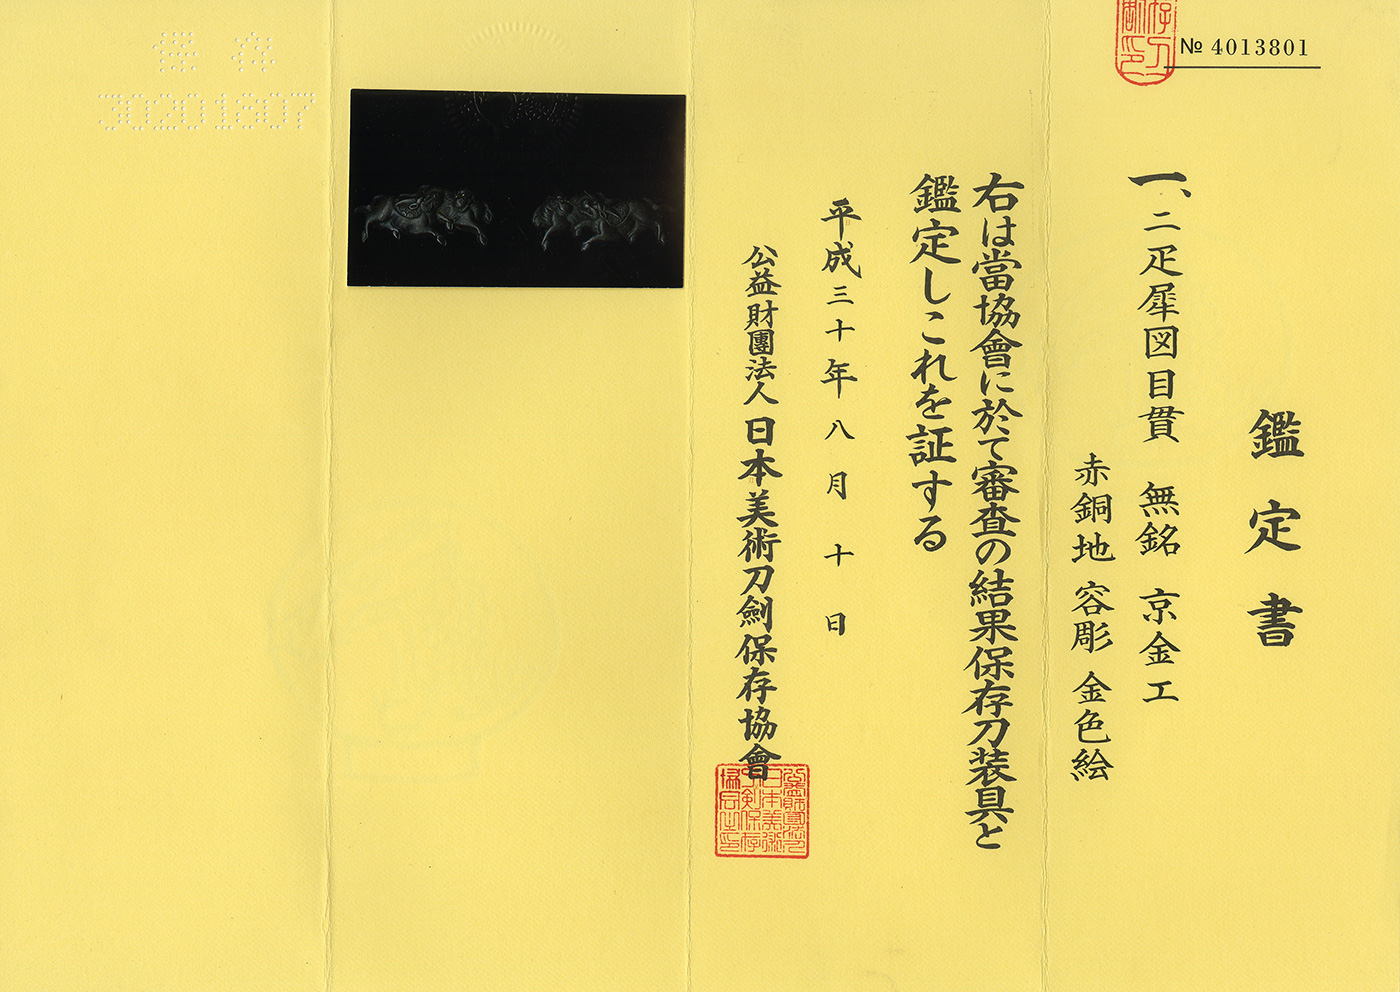 № 4013801
鑑定書
一、二疋犀図目貫 無銘 京金工
赤銅地 容彫 金色絵
右は當協會に於て審査の結果保存刀装具と
鑑定しこれを証する
平成三十年八月十日
公益財團法人 日本美術刀劍保存協會
保存
30201807